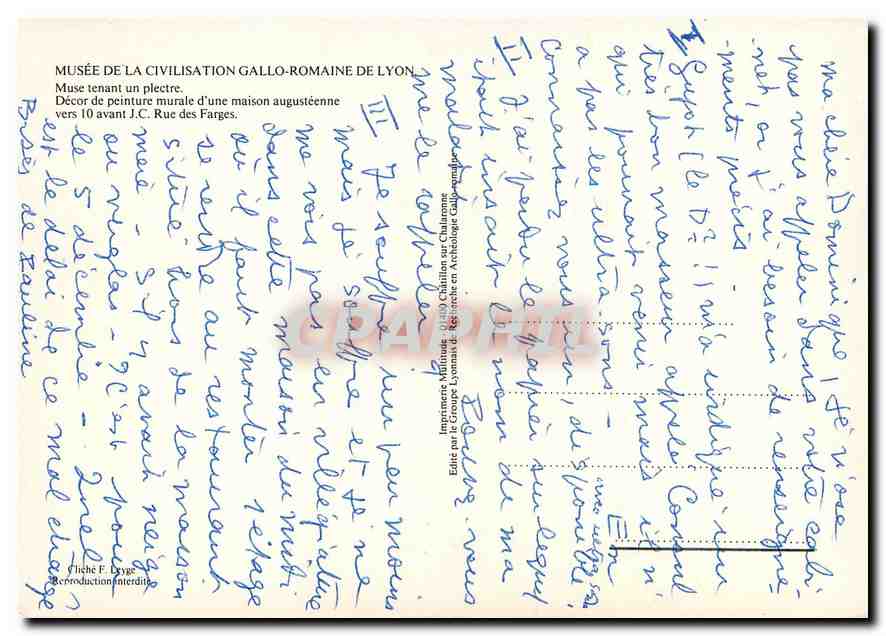 MUSÉE DE LA CIVILISATION GALLO-ROMAINE DE LYON
Muse tenant un plectre.
Décor de peinture murale d'une maison augustéenne
vers 10 avant J.C. Rue des Farges.
Ma chère Dominique, je n'ose
pas vous appeler dans votre cabi-
net or j'ai besoin de renseigne-
ments précis
I Guyot (le D?) m'a indiqué un
très bon masseur appelé Consul
qui pouvait venir mais il n'
a pas les ultra sons - En
connaissez vous un, disponible,
II J'ai perdu le papier sur lequel
était inscrit le nom de ma
maladie Pouvez vous
me le rappeler ?
III Je souffre un peu moins
mais je souffre et je ne
me vois pas en villégiature
dans cette maison du
où il faut monter 1 étage
se rendre au restaurant
situé hors de la maison
mère - S'il y avait neige
ou verglas - ? C'est pour
le 5 décembre - Quel
est le délai de ce mal étrange ?
Bises de Pauline
Imprimerie Multitude - 01400 Châtillon sur Chalaronne
Edité par le Groupe Lyonnais de Recherche en Archéologie Gallo-romaine
Cliché F. Leyge
Reproduction interdite
CPAPHIL